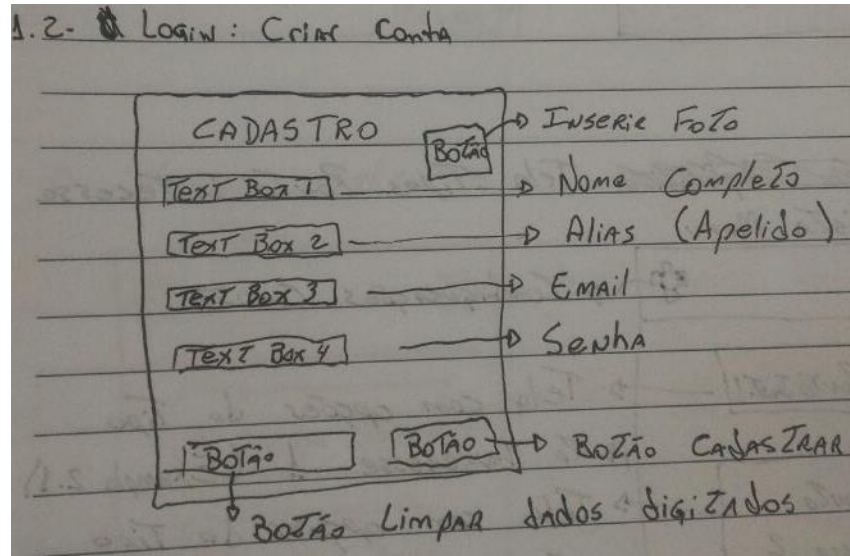 1.2- Login: Criar Conta
CADASTRO
Botão
Inserir Foto
Text Box 1
Nome Completo
Text Box 2
Alias (Apelido)
Text Box 3
Email
Text Box 4
Senha
Botão
Botão
Botão Cadastrar
Botão Limpar dados digitados